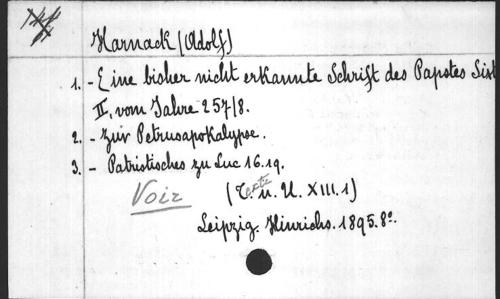 Harnack (Adolf)
1. - Eine bisher nicht erkannte Schrift des Papstes Sixt
II, vom Jahre 257/8.
2. - Zur Petrusapokalypse.
3. - Patristisches zu Luc 16.19.
Voir (Texte u. U. XIII.1)
Leipzig. Hinrichs. 1895. 8º.